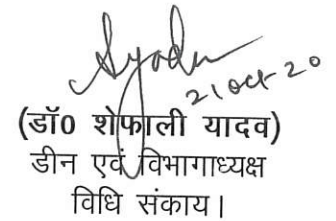 Syadav
21 oct 20
(डॉ0 शेफाली यादव)
डीन एवं विभागाध्यक्ष
विधि संकाय।